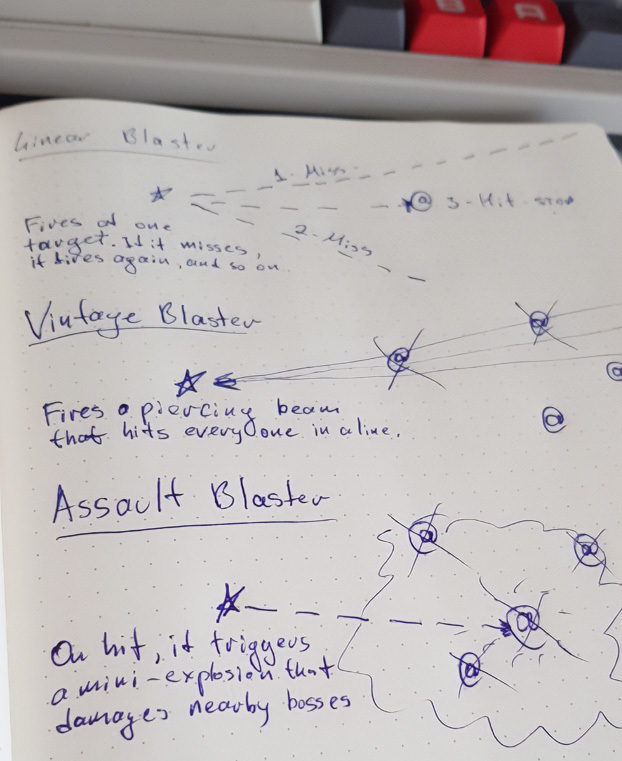 Linear Blaster
1-Miss
3-Hit-stop
2-Miss
Fires at one
target. If it misses,
it fires again, and so on.
Vintage Blaster
@
@
@
@
@
Fires a piercing beam
that hits everyone in a line.
Assault Blaster
@
@
@
@
On hit, it triggers
a mini-explosion that
damages nearby bosses